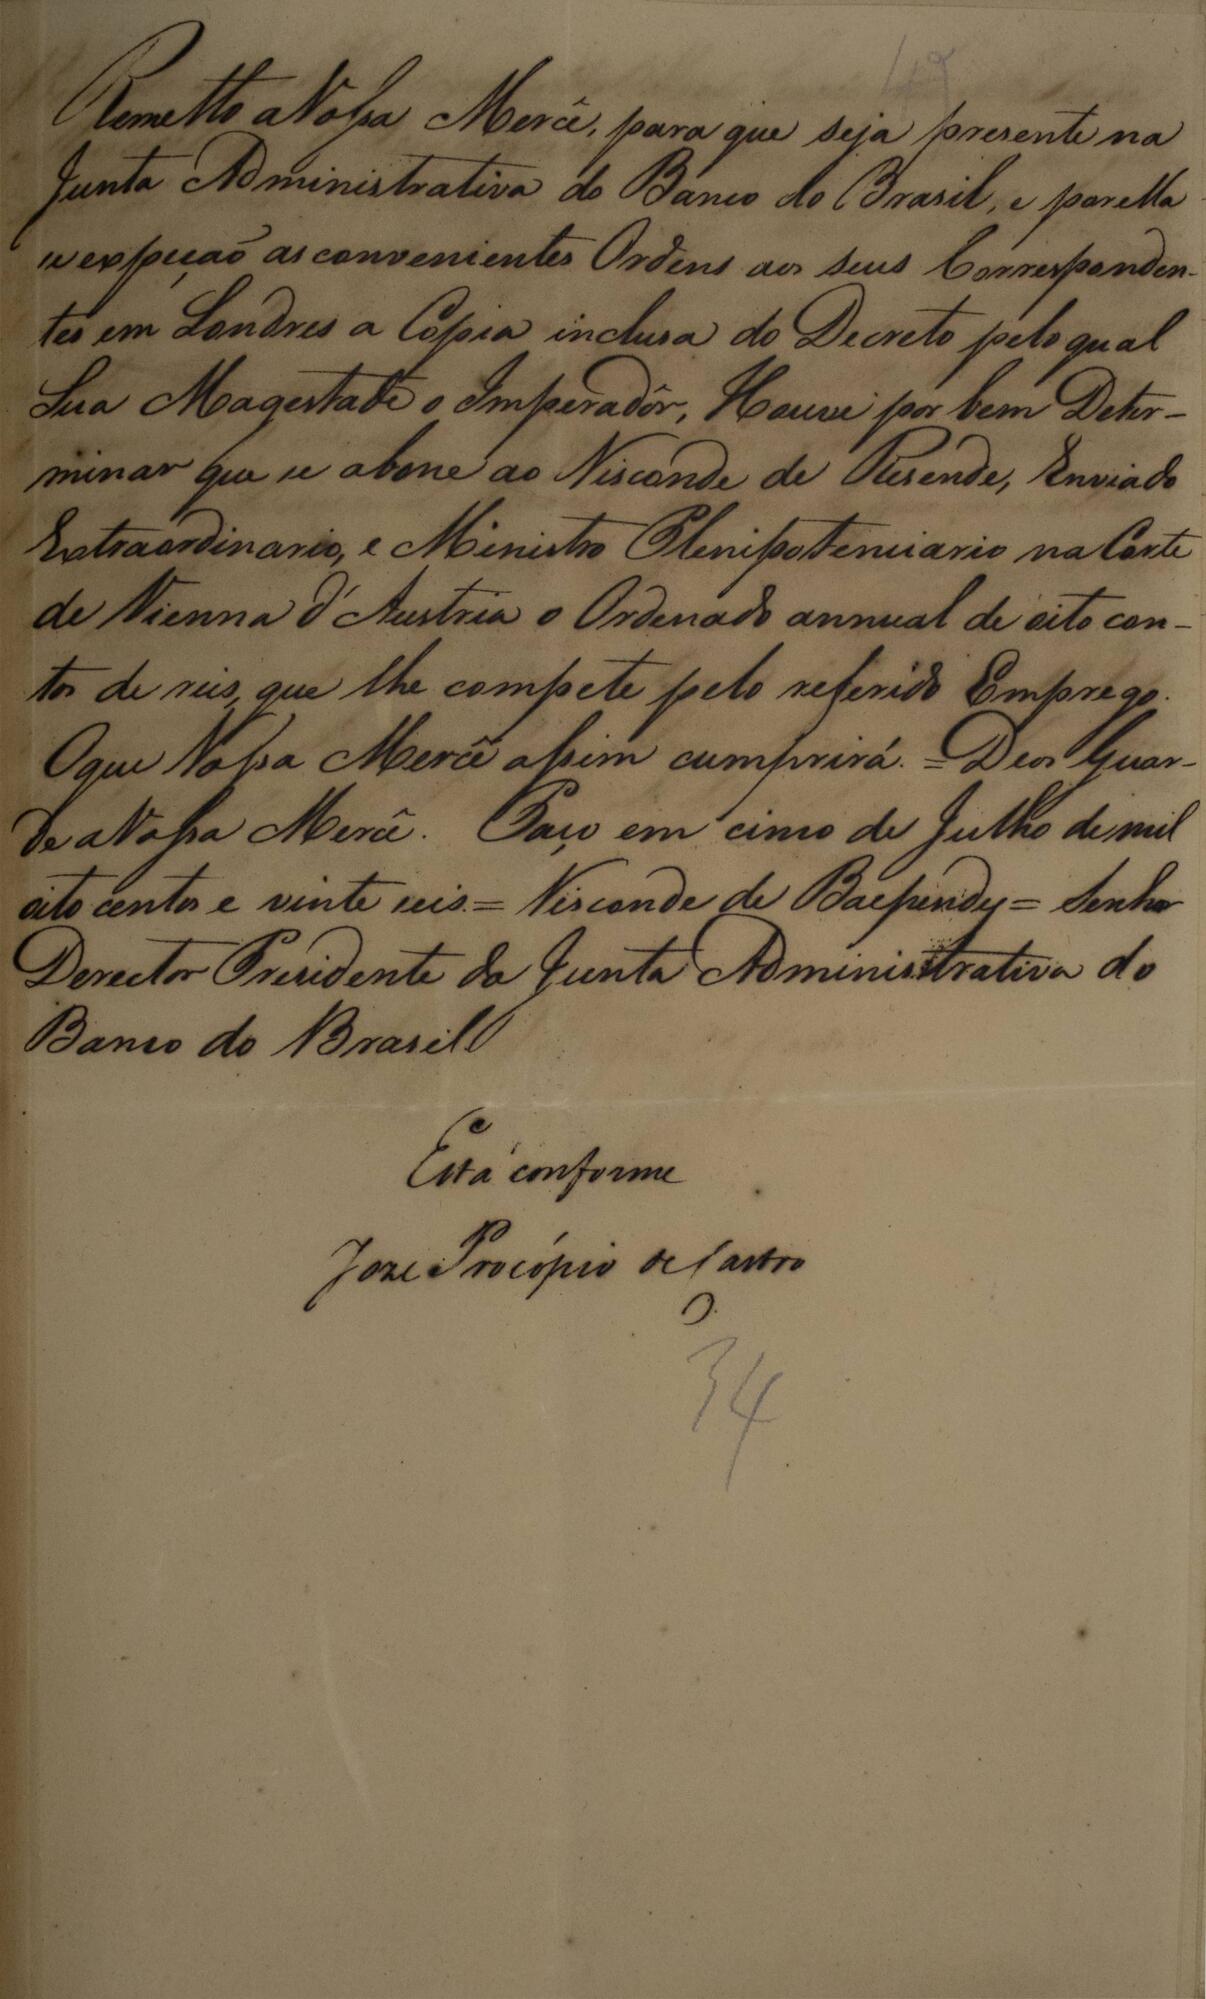 49
Remetto a Vossa Mercê, para que seja presente na
Junta Administrativa do Banco do Brasil, e por ella
se expeçaõ as convenientes Ordens aos seus Corresponden-
tes em Londres a Cópia inclusa do Decreto pelo qual
Sua Magestade o Imperadôr, Houve por bem Deter-
minar que se abone ao Visconde de Resende, Enviado
Extraordinario, e Ministro Plenipotenciario na Corte
de Vienna d'Austria o Ordenado annual de oito con-
tos de reis, que lhe compete pelo referido Emprego.
O que Vossa Mercê assim cumprirá. = Deos Guar-
de a Vossa Mercê. Paço em cinco de Julho de mil
oito centos e vinte seis. = Visconde de Baependy = Senhor
Derector Presidente da Junta Administrativa do
Banco do Brasil
Está conforme
Joze Procópio de Castro
34